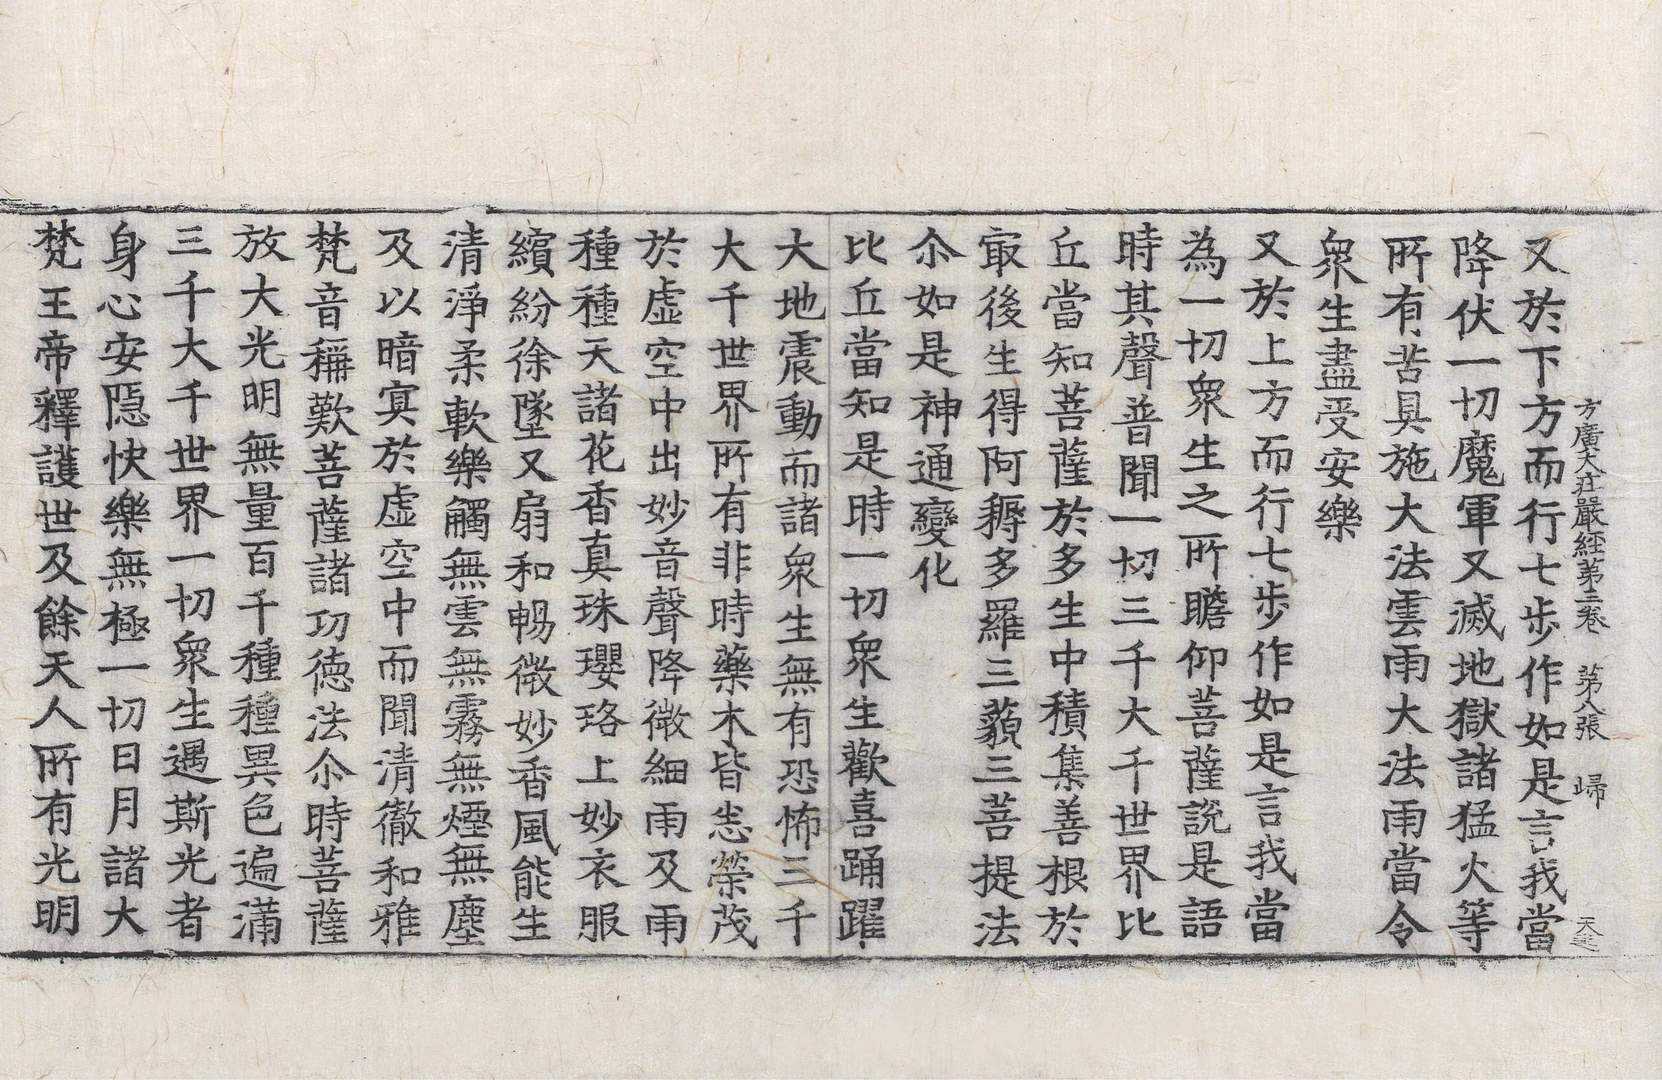 方廣大莊嚴經第三卷　第八張　歸
又於下方而行七步作如是言我當
降伏一切魔軍又滅地獄諸猛火等
所有苦具施大法雲雨大法雨當令
衆生盡受安樂
又於上方而行七步作如是言我當
為一切衆生之所瞻仰菩薩說是語
時其聲普聞一切三千大千世界比
丘當知菩薩於多生中積集善根於
㝡後生得阿耨多羅三藐三菩提法
尒如是神通變化
比丘當知是時一切衆生歡喜踊躍
大地震動而諸衆生無有恐怖三千
大千世界所有非時藥木皆悉榮茂
於虛空中出妙音聲降微細雨及雨
種種天諸花香真珠瓔珞上妙衣服
繽紛徐墜又扇和暢微妙香風能生
清淨柔軟樂觸無雲無霧無煙無塵
及以暗㝠於虛空中而聞清徹和雅
梵音稱歎菩薩諸功德法尒時菩薩
放大光明無量百千種種異色遍滿
三千大千世界一切衆生遇斯光者
身心安隱快樂無極一切日月諸大
梵王帝釋護世及餘天人所有光明